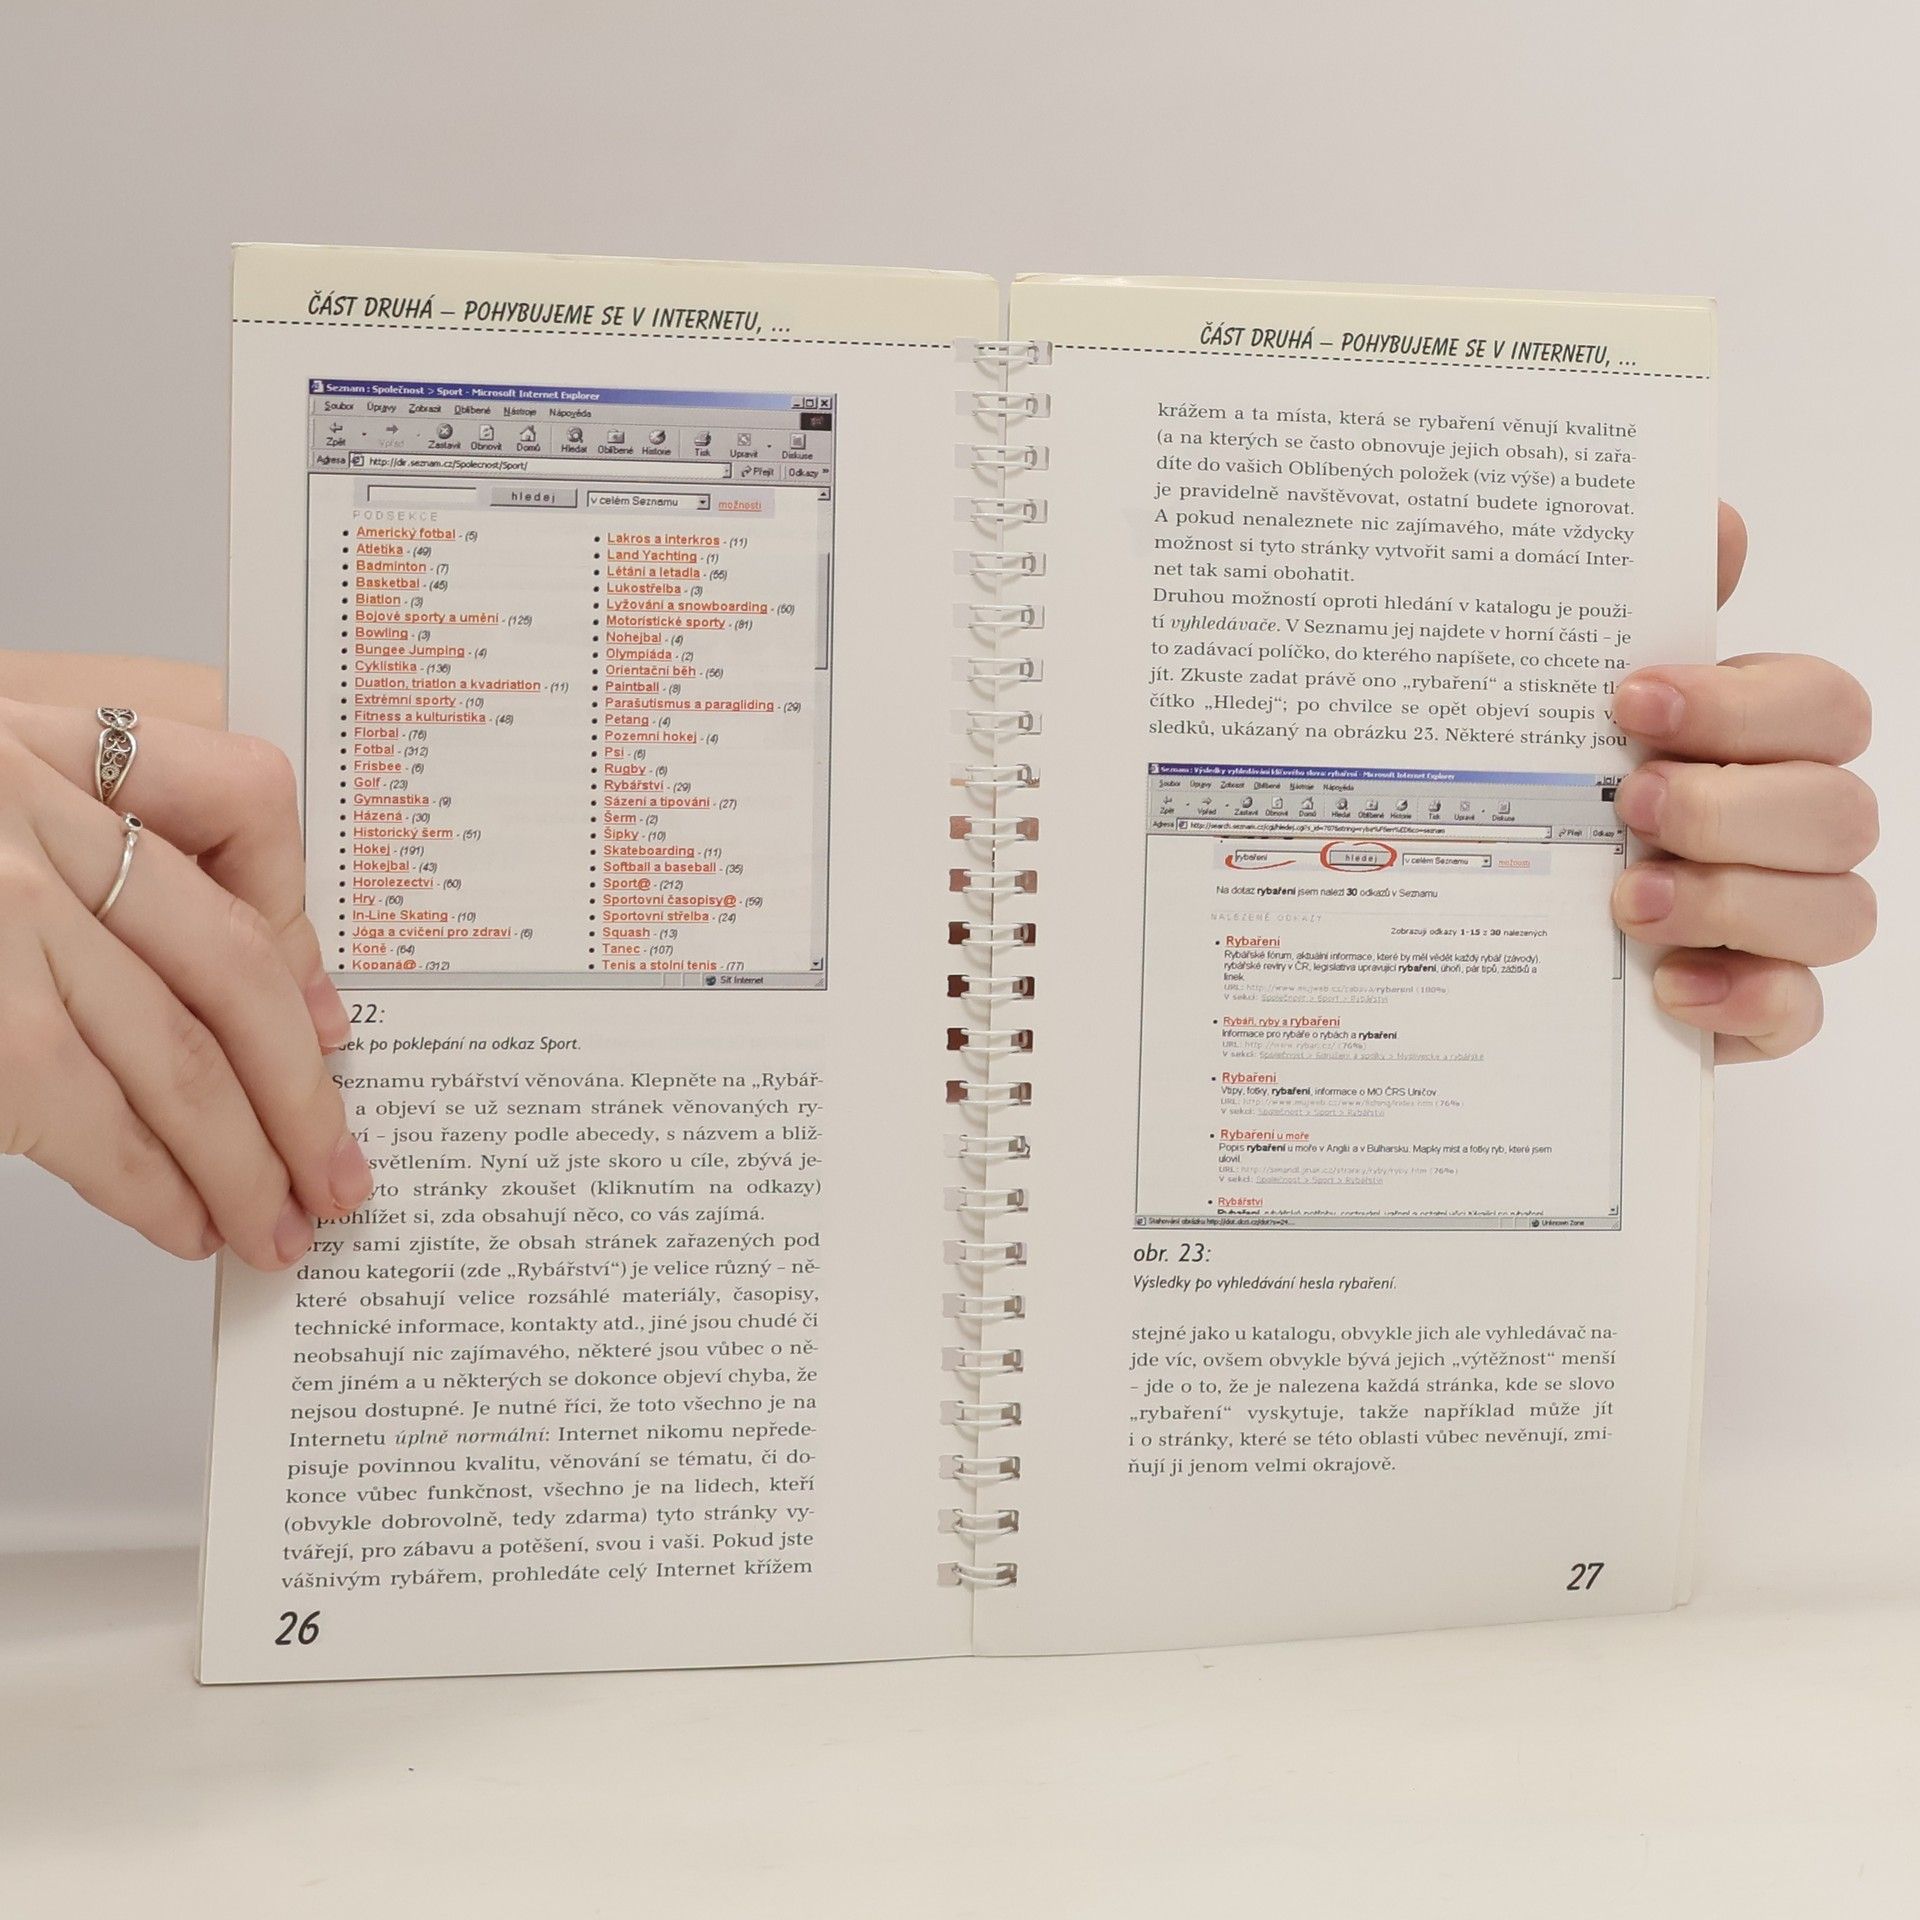 ČÁST DRUHÁ – POHYBUJEME SE V INTERNETU, ...
Seznam : Společnost > Sport - Microsoft Internet Explorer
Soubor Úpravy Zobrazit Oblíbené Nástroje Nápověda
Zpět Vpřed Zastavit Obnovit Domů Hledat Oblíbené Historie Tisk Upravit Diskuse
Adresa http://dir.seznam.cz/Spolecnost/Sport/ Přejít Odkazy »
hledej v celém Seznamu možnosti
PODSEKCE
• Americký fotbal - (5)
• Atletika - (49)
• Badminton - (7)
• Basketbal - (45)
• Biatlon - (3)
• Bojové sporty a umění - (125)
• Bowling - (3)
• Bungee Jumping - (4)
• Cyklistika - (136)
• Duatlon, triatlon a kvadriatlon - (11)
• Extrémní sporty - (10)
• Fitness a kulturistika - (48)
• Florbal - (76)
• Fotbal - (312)
• Frisbee - (6)
• Golf - (23)
• Gymnastika - (9)
• Házená - (30)
• Historický šerm - (51)
• Hokej - (191)
• Hokejbal - (43)
• Horolezectví - (60)
• Hry - (60)
• In-Line Skating - (10)
• Jóga a cvičení pro zdraví - (6)
• Koně - (64)
• Kopaná@ - (312)
• Lakros a interkros - (11)
• Land Yachting - (1)
• Létání a letadla - (55)
• Lukostřelba - (3)
• Lyžování a snowboarding - (50)
• Motoristické sporty - (81)
• Nohejbal - (4)
• Olympiáda - (2)
• Orientační běh - (56)
• Paintball - (8)
• Parašutismus a paragliding - (29)
• Petang - (4)
• Pozemní hokej - (4)
• Psi - (6)
• Rugby - (6)
• Rybářství - (29)
• Sázení a tipování - (27)
• Šerm - (2)
• Šipky - (10)
• Skateboarding - (11)
• Softball a baseball - (35)
• Sport@ - (212)
• Sportovní časopisy@ - (59)
• Sportovní střelba - (24)
• Squash - (13)
• Tanec - (107)
• Tenis a stolní tenis - (77)
Síť Internet
22:
po poklepání na odkaz Sport.
Seznamu rybářství věnována. Klepněte na „Rybář-
a objeví se už seznam stránek věnovaných ry-
ví – jsou řazeny podle abecedy, s názvem a bliž-
světlením. Nyní už jste skoro u cíle, zbývá je-
yto stránky zkoušet (kliknutím na odkazy)
prohlížet si, zda obsahují něco, co vás zajímá.
rzy sami zjistíte, že obsah stránek zařazených pod
danou kategorii (zde „Rybářství“) je velice různý – ně-
které obsahují velice rozsáhlé materiály, časopisy,
technické informace, kontakty atd., jiné jsou chudé či
neobsahují nic zajímavého, některé jsou vůbec o ně-
čem jiném a u některých se dokonce objeví chyba, že
nejsou dostupné. Je nutné říci, že toto všechno je na
Internetu úplně normální: Internet nikomu nepřede-
pisuje povinnou kvalitu, věnování se tématu, či do-
konce vůbec funkčnost, všechno je na lidech, kteří
(obvykle dobrovolně, tedy zdarma) tyto stránky vy-
tvářejí, pro zábavu a potěšení, svou i vaši. Pokud jste
vášnivým rybářem, prohledáte celý Internet křížem
26
ČÁST DRUHÁ – POHYBUJEME SE V INTERNETU, ...
krážem a ta místa, která se rybaření věnují kvalitně
(a na kterých se často obnovuje jejich obsah), si zařa-
díte do vašich Oblíbených položek (viz výše) a budete
je pravidelně navštěvovat, ostatní budete ignorovat.
A pokud nenaleznete nic zajímavého, máte vždycky
možnost si tyto stránky vytvořit sami a domácí Inter-
net tak sami obohatit.
Druhou možností oproti hledání v katalogu je použi-
tí vyhledávače. V Seznamu jej najdete v horní části – je
to zadávací políčko, do kterého napíšete, co chcete na-
jít. Zkuste zadat právě ono „rybaření“ a stiskněte tl
čítko „Hledej“; po chvilce se opět objeví soupis v
sledků, ukázaný na obrázku 23. Některé stránky jsou
Seznam : Výsledky vyhledávání klíčového slova: rybaření - Microsoft Internet Explorer
Soubor Úpravy Zobrazit Oblíbené Nástroje Nápověda
Zpět Vpřed Zastavit Obnovit Domů Hledat Oblíbené Historie Tisk Upravit Diskuse
Adresa Přejít Odkazy »
rybaření hledej v celém Seznamu možnosti
Na dotaz rybaření jsem nalezl 30 odkazů v Seznamu
NALEZENÉ ODKAZY
Zobrazuji odkazy 1-15 z 30 nalezených
• Rybaření
Rybářské fórum, aktuální informace, které by měl vědět každý rybář (závody),
rybářské revíry v ČR, legislativa upravující rybaření, úhoři, pár tipů, zážitků a
linek.
URL: http://www.mujweb.cz/zabava/rybareni (100%)
V sekci: Společnost > Sport > Rybářství
• Rybáři, ryby a rybaření
Informace pro rybáře o rybách a rybaření.
URL: http://www.rybari.cz/ (76%)
V sekci: Společnost > Sdružení a spolky > Myslivecké a rybářské
• Rybaření
Vtipy, fotky, rybaření, informace o MO ČRS Uničov.
URL: http://www.mujweb.cz/www/fishing/index.htm (76%)
V sekci: Společnost > Sport > Rybářství
• Rybaření u moře
Popis rybaření u moře v Anglii a v Bulharsku. Mapky míst a fotky ryb, které jsem
ulovil.
V sekci: Společnost > Sport > Rybářství
• Rybářství
Unknown Zone
obr. 23:
Výsledky po vyhledávání hesla rybaření.
stejné jako u katalogu, obvykle jich ale vyhledávač na-
jde víc, ovšem obvykle bývá jejich „výtěžnost“ menší
– jde o to, že je nalezena každá stránka, kde se slovo
„rybaření“ vyskytuje, takže například může jít
i o stránky, které se této oblasti vůbec nevěnují, zmi-
ňují ji jenom velmi okrajově.
27